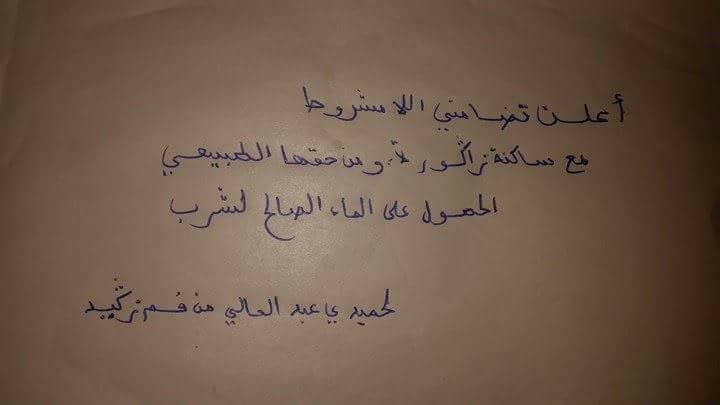 أعلن تضامني اللامشروط
مع ساكنة زاكورة ومن حقها الطبيعي
الحصول على الماء الصالح لشرب
لحميدي عبد العالي من فم زكيد